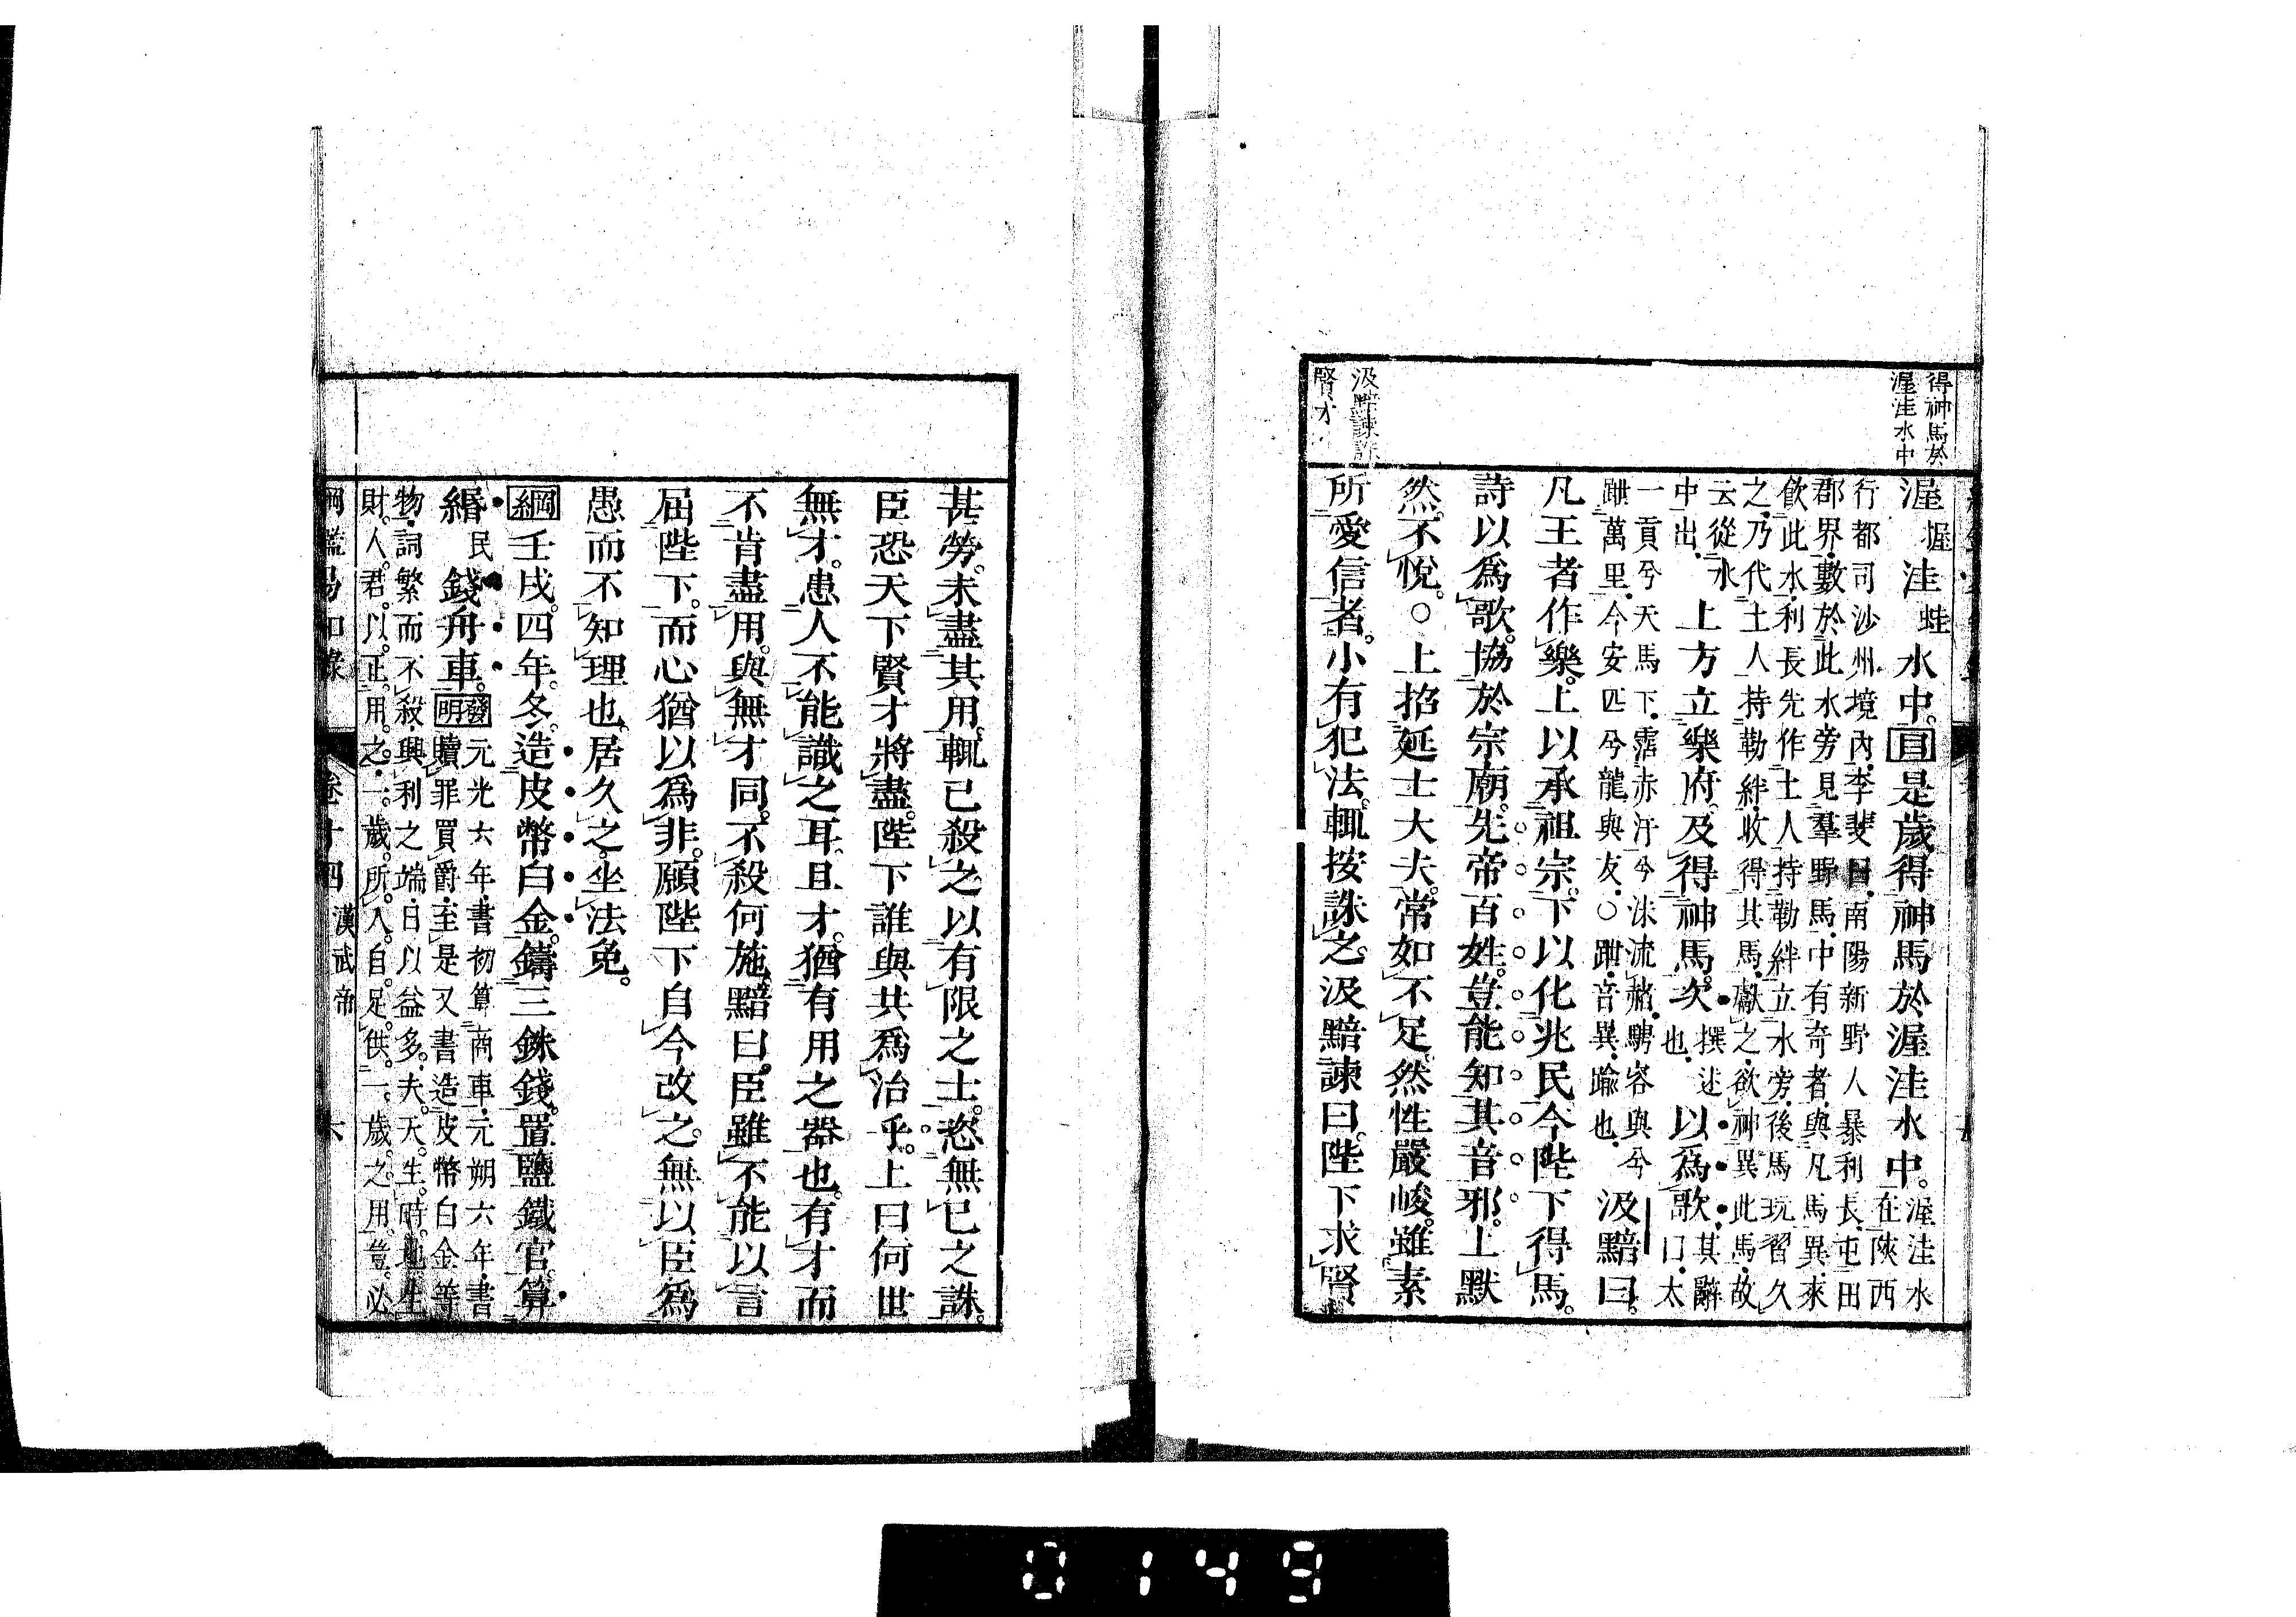 得神馬於
渥洼水中
渥握洼蛙水中。目是歲得神馬於渥洼水中。渥洼水
在陝西
行都司沙州境內李斐曰南陽新野人暴利長屯田
郡界數於此水旁見羣野馬中有奇者與凡馬異來
飲此水利長先作土人持勒絆立水旁後馬玩習久
之乃代土人持勒絆收得其馬獻之欲神異此馬故
云從水
中出上方立樂府。及得神馬。次撰述
也以爲歌其辭
曰太
一貢兮天馬下霑赤汗兮沬流赭騁容與兮
跇萬里今安匹兮龍與友○跇音異踰也汲黯曰。
凡王者作樂。上以承祖宗。下以化兆民今陛下得馬。
詩以爲歌。協於宗廟。先帝百姓。豈能知其音邪。上默
然。不悅。○上招延士大夫。常如不足。然性嚴峻。雖素
汲黯諫
賢才
所愛信者。小有犯法。輒按誅之。汲黯諫曰。陛下求賢
甚勞。未盡其用。輒已殺之以有限之士。恣無已之誅。
臣恐天下賢才將盡。陛下誰與共爲治乎。上曰何世
無才。患人不能識之耳。且才。猶有用之器也。有才而
不肯盡用。與無才同。不殺何施。黯曰。臣雖不能以言
屈陛下。而心猶以爲非。願陛下自今改之。無以臣爲
愚而不知理也。居久之。坐法免。
綱壬戌。四年。冬。造皮幣白金。鑄三銖錢。置鹽鐵官。算
緡民錢舟車。發明元光六年書初算商車元朔六年書
贖罪買爵至是又書造皮幣白金等
物詞繁而不殺興利之端日以益多夫。天。生。時。地生
財。人。君。以。正。用。之。一。歲。所。入。自。足。供。一。歲。之用。豈。必
綱鑑易知錄 卷十四 漢武帝 六
0149